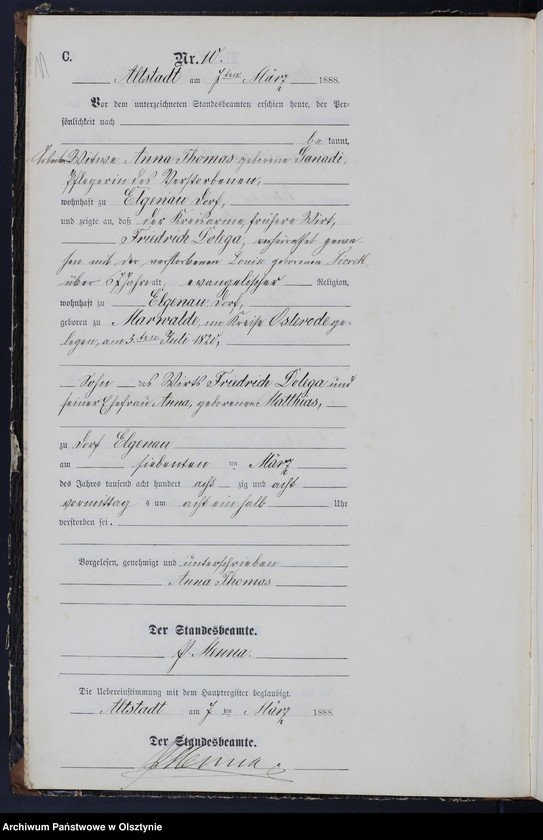 11
C.
Nr. 10.
Altstadt am 7ten März 1888.
Vor dem unterzeichneten Standesbeamten erschien heute, der Per-
sönlichkeit nach
be kannt,
Witwe Anna Thomas geborene Sanadi,
Pflegerin des Verstorbenen,
wohnhaft zu Elgenau Dorf,
und zeigte an, daß der Kreisarme, frühere Wirt,
Friedrich Dolega, verheirathet gewe-
sen mit der verstorbenen Louise geborenen
über 67 Jahre alt, evangelischer Religion,
wohnhaft zu Elgenau Dorf,
geboren zu Marwalde, im Kreise Osterode ge-
legen, am 5. ten Juli 1820,
Sohn des Wirts Friedrich Dolega und
seiner Ehefrau Anna, geborenen Matthias,
zu Dorf Elgenau
am siebenten ten März
des Jahres tausend acht hundert acht zig und acht
vormittag s um acht ein halb Uhr
verstorben sei.
Vorgelesen, genehmigt und unterschrieben
Anna Thomas
Der Standesbeamte.
Menna.
Die Uebereinstimmung mit dem Hauptregister beglaubigt.
Altstadt am 7 ten März 1888.
Der Standesbeamte.
Menna.
Archiwum Państwowe w Olsztynie